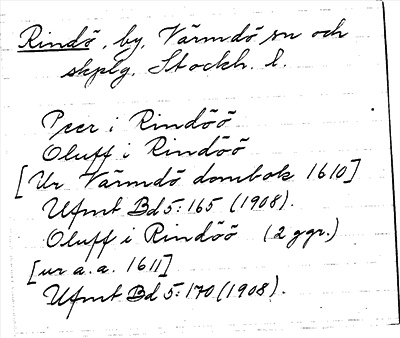 Rindö, by, Värmdö sn och
skplg, Stockh. l.
Peer i Rindöö
Oluff i Rindöö
[Ur Värmdö dombok 1610]
Ufmt Bd 5:165 (1908).
Oluff i Rindöö (2 ggr.)
[ur a.a. 1611]
Ufmt Bd 5:170 (1908).